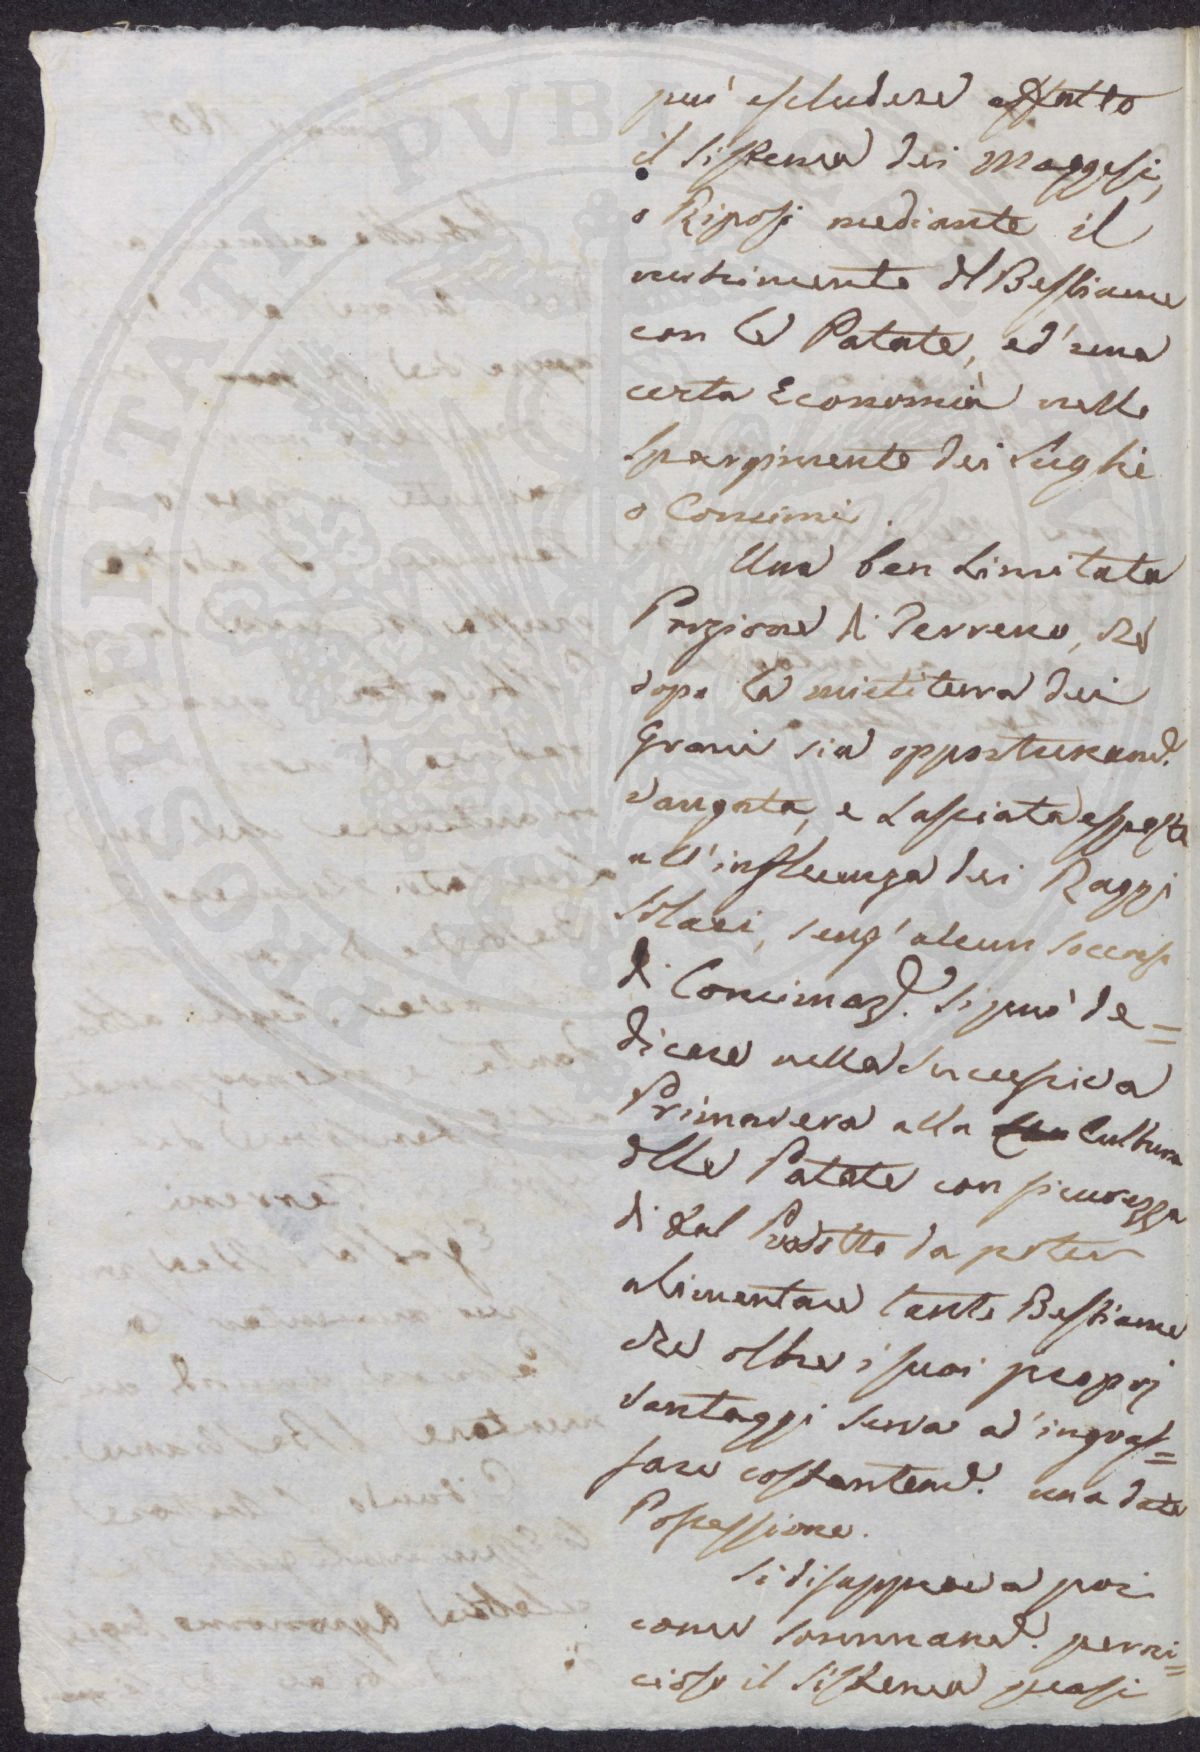 può escludere affatto
il Sistema dei Maggesi,
o Riposi mediante il
nutrimento del Bestiame
con le Patate, ed' una
certa Economia nello
spargimento dei Sughi
o Concimi.
Una ben Limitata
Porzione di Terreno, che
dopo la mietitura dei
Grani sia opportunam.e
vangata, e Lasciata esposta
all'influenza dei Raggi
Solari, senz' alcun soccorso
di Concimaz.e si può de=
dicare nella Successiva
Primavera alla Cultura
delle Patate con sicurezza
di tal Prodotto da poter
alimentare tanto Bestiame
che oltre i suoi proprj
vantaggi serva ad' ingras=
sare costantem.e una data
Possessione.
Si disapprova poi
come sommam.e perni=
cioso il Sistema quasi
PVBLICAE
PROSPERITATI